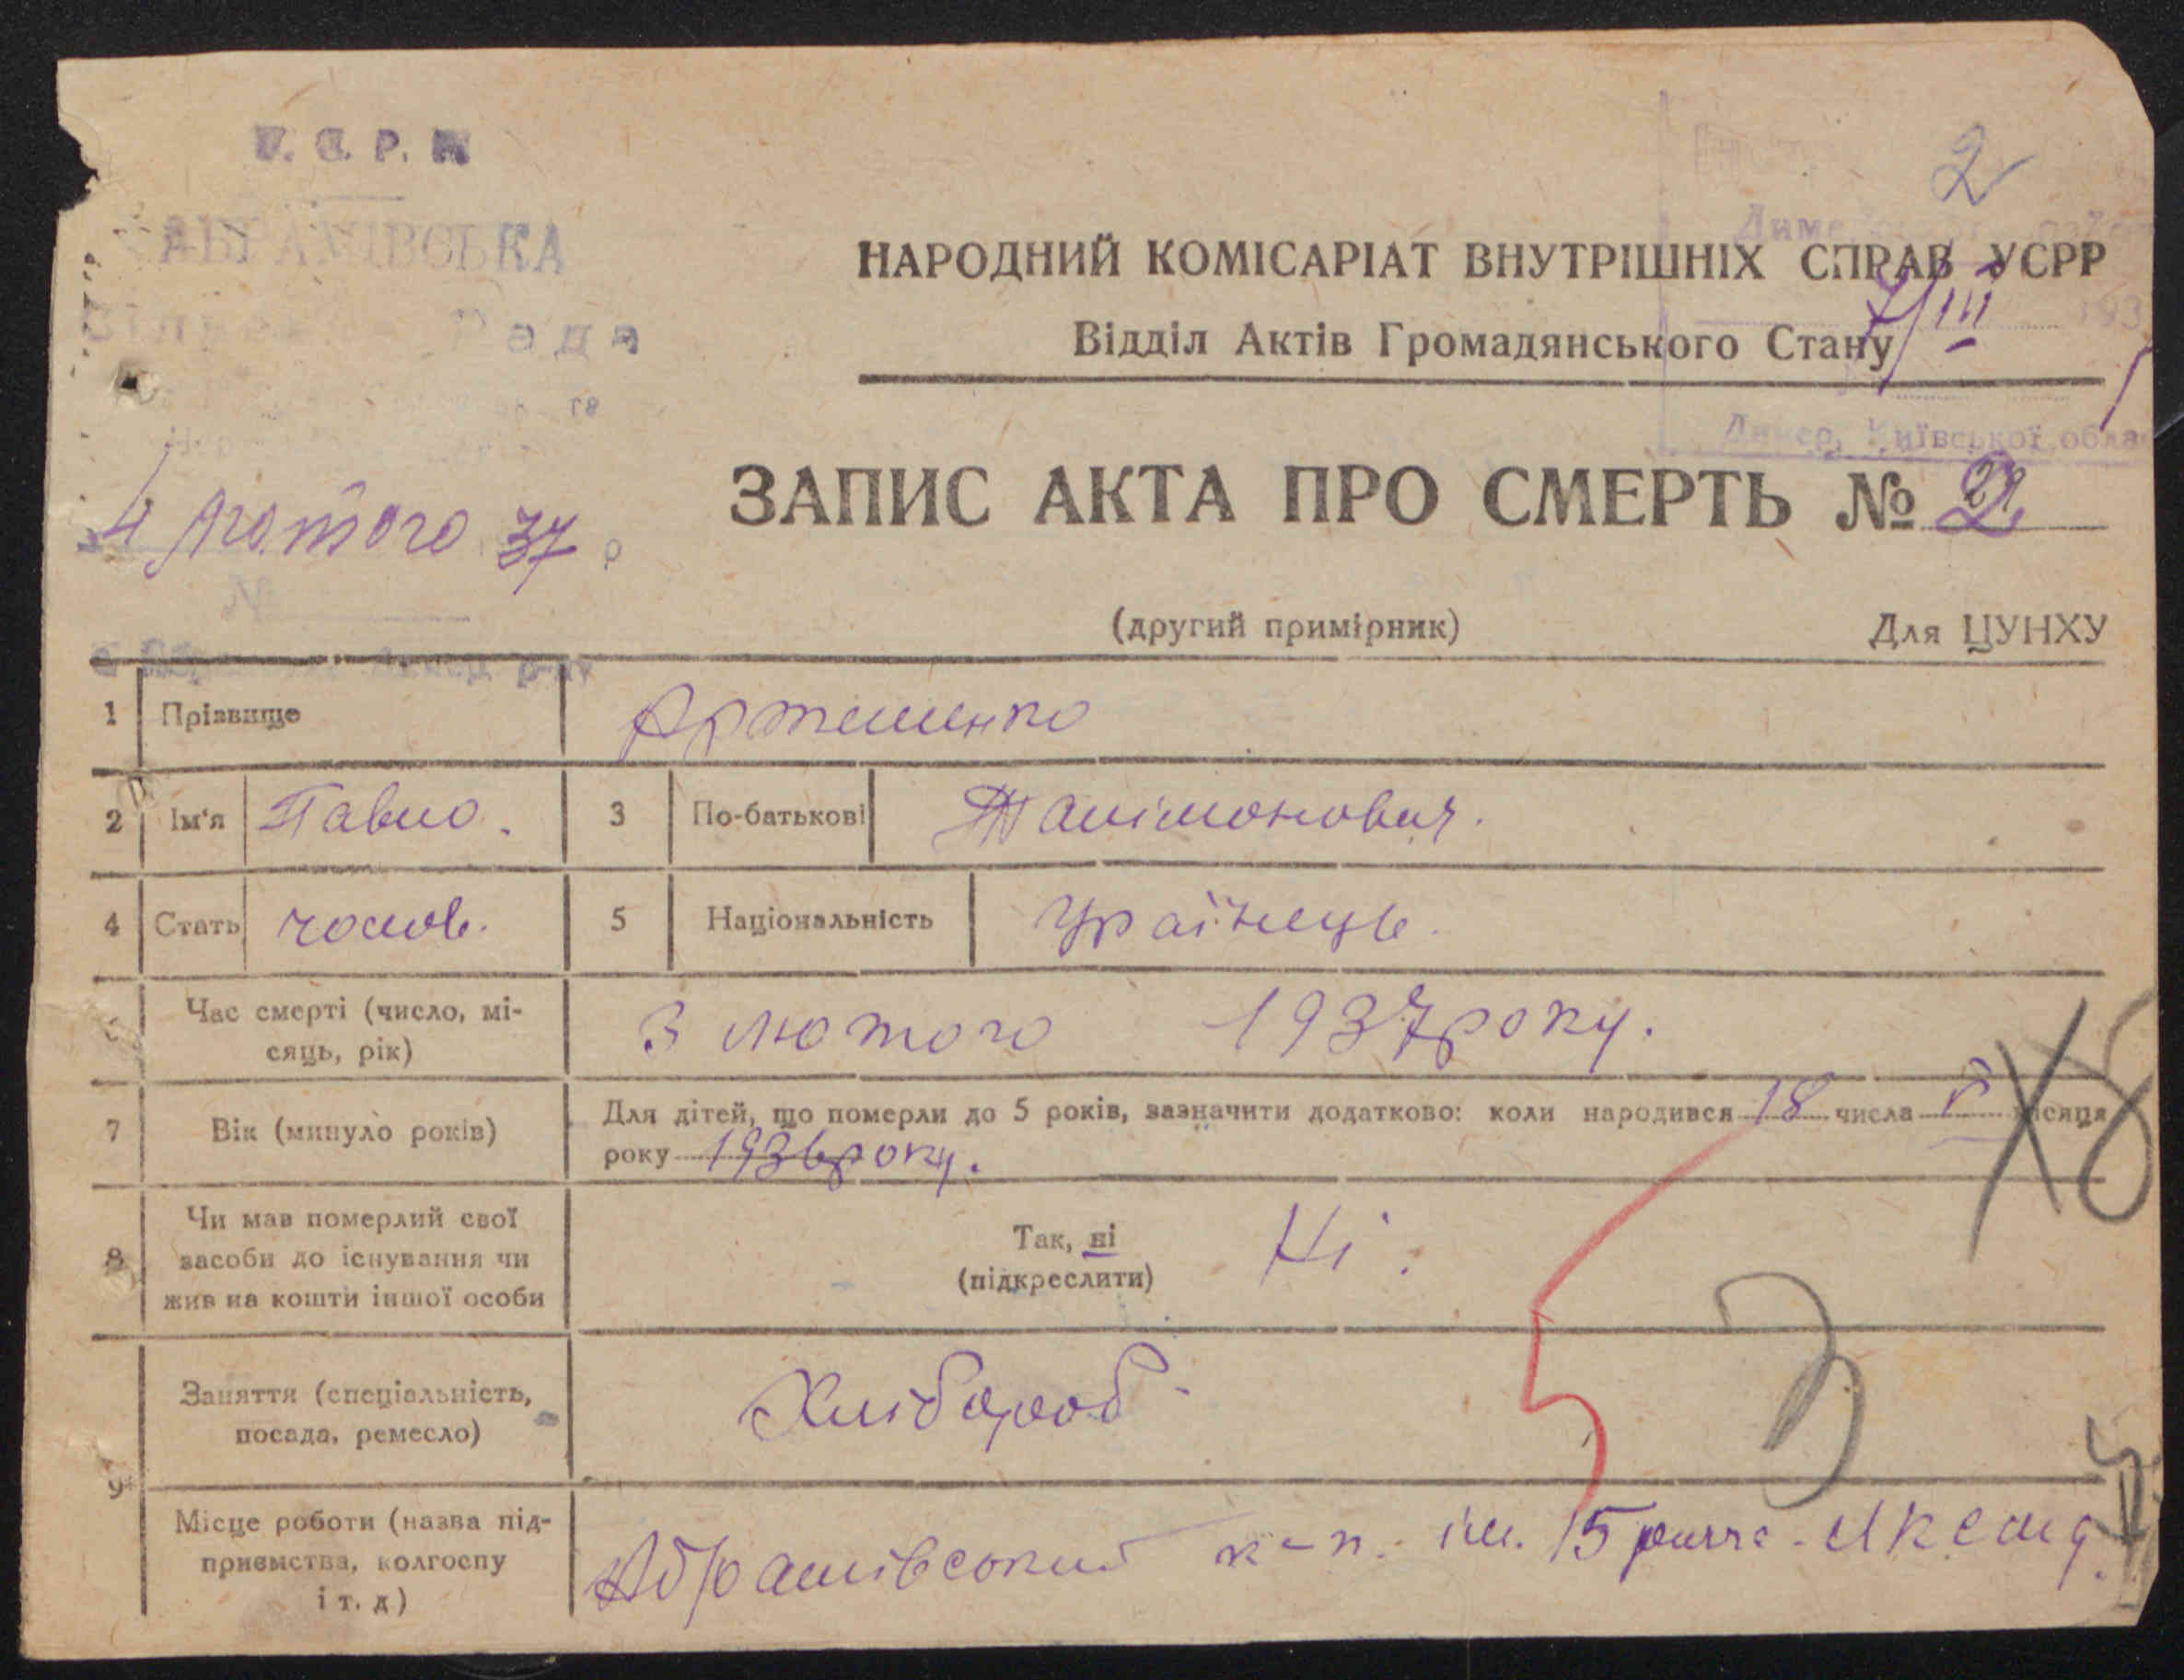 У. С. Р. Р.
АБРАМІВСЬКА
Рада
2
НАРОДНИЙ КОМІСАРІАТ ВНУТРІШНІХ СПРАВ УСРР
7/III 193
Відділ Актів Громадянського Стану
Димер, Київської обла
4 лютого 37 р
ЗАПИС АКТА ПРО СМЕРТЬ № 2
№
(другий примірник) Для ЦУНХУ
1 Прізвище Артеменко
2 Ім'я Павло. 3 По-батькові
4 Стать чолов. 5 Національність Українець.
Час смерті (число, мі-
сяць, рік) 3 лютого 1937 року.
7 Вік (минуло років) Для дітей, що померли до 5 років, зазначити додатково: коли народився 18 числа V місяця
року 1936 року.
8 Чи мав померлий свої
засоби до існування чи
жив на кошти іншої особи
Так, ні
(підкреслити) Ні.
9 Заняття (спеціальність,
посада, ремесло) Хлібороб
Місце роботи (назва під-
приємства, колгоспу
і т. д) Абрамівський к-п. ім. 15 річчя